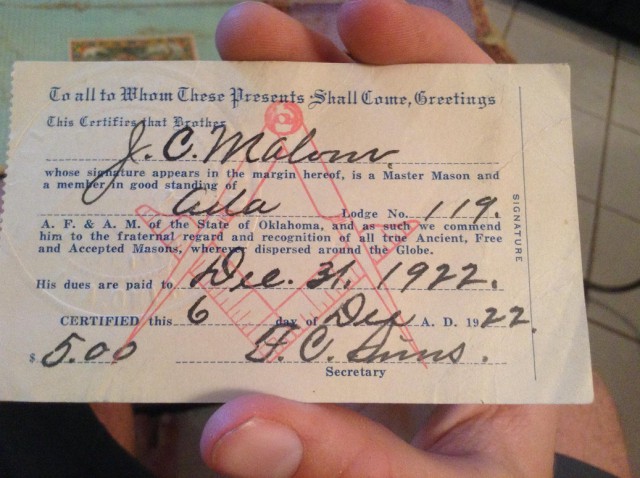 To all to Whom These Presents Shall Come, Greetings
This Certifies that Brother
J. C. Malone
whose signature appears in the margin hereof, is a Master Mason and
a member in good standing of
Ada Lodge No. 119.
A. F. & A. M. of the State of Oklahoma, and as such we commend
him to the fraternal regard and recognition of all true Ancient, Free
and Accepted Masons, wherever dispersed around the Globe.
His dues are paid to Dec. 31, 1922.
CERTIFIED this 6 day of Dec A. D. 1922.
$5.00 F. C. Sims.
Secretary
SIGNATURE